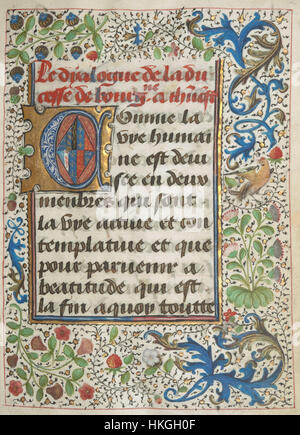 Le dyalogue de la du
cesse de bourgne a ihesu
Comme la
vye humai
ne est deui
see en deux
membres qui sont
la vye actiue et con
templatiue et que
pour paruenir a
beatitude qui est
la fin a quoy toutte
alamy
HKGH0F